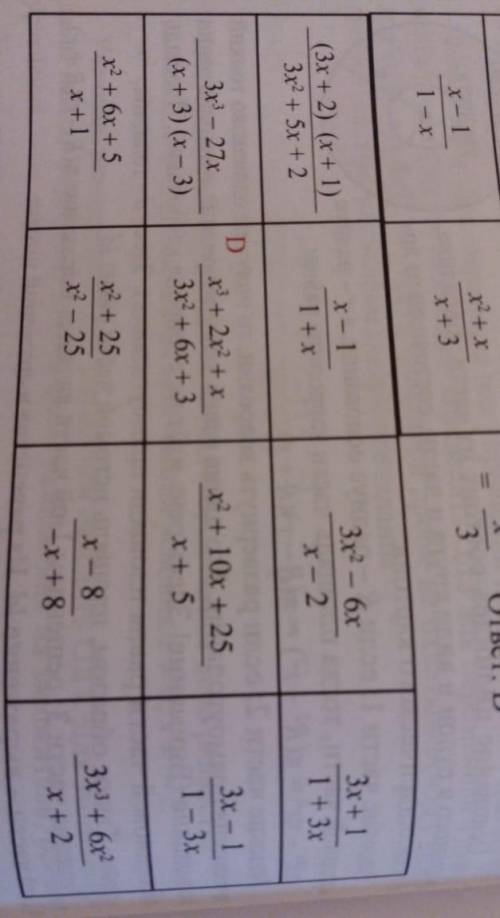 = x/3 Ответ: D
(x − 1)/(1 − x) (x² + x)/(x + 3)
((3x + 2) (x + 1))/(3x² + 5x + 2) (x − 1)/(1 + x) (3x² − 6x)/(x − 2) (3x + 1)/(1 + 3x)
(3x³ − 27x)/((x + 3) (x − 3)) D (x³ + 2x² + x)/(3x² + 6x + 3) (x² + 10x + 25)/(x + 5) (3x − 1)/(1 − 3x)
(x² + 6x + 5)/(x + 1) (x² + 25)/(x² − 25) (x − 8)/(−x + 8) (3x³ + 6x²)/(x + 2)